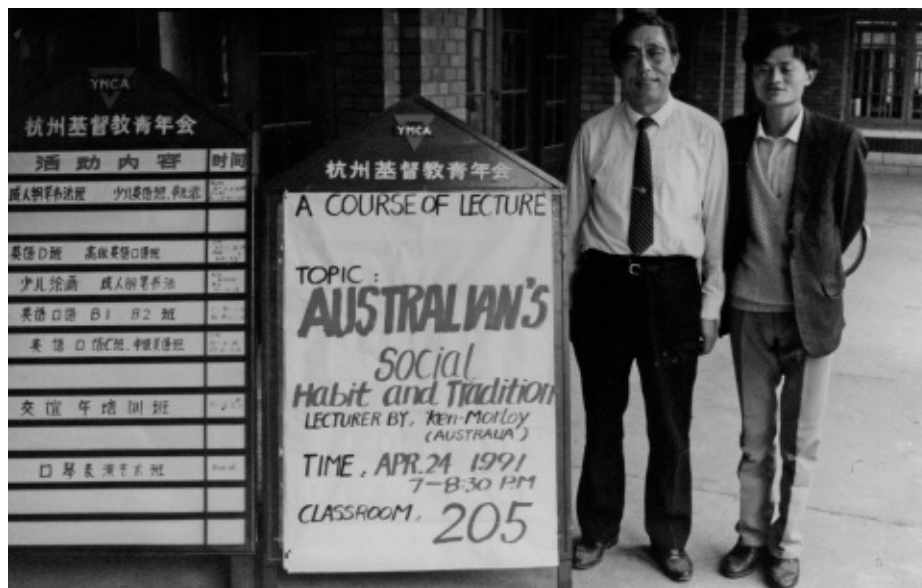 YMCA
杭州基督教青年会
活动内容 时间
成人钢笔书法班 少儿英语班
英语口班 高级英语口语班
少儿绘画 成人钢笔书法
英语口语 B1 B2 班
英语口语C班、中级英语班
交谊 培训班
口琴表演艺术班
YMCA
杭州基督教青年会
A COURSE OF LECTURE
TOPIC :
AUSTRALIAN'S
SOCIAL
Habit and Tradition
LECTURER BY, Ken-Morloy
(AUSTRALIA)
TIME, APR.24 1991
7-8:30 P.M
CLASSROOM, 205